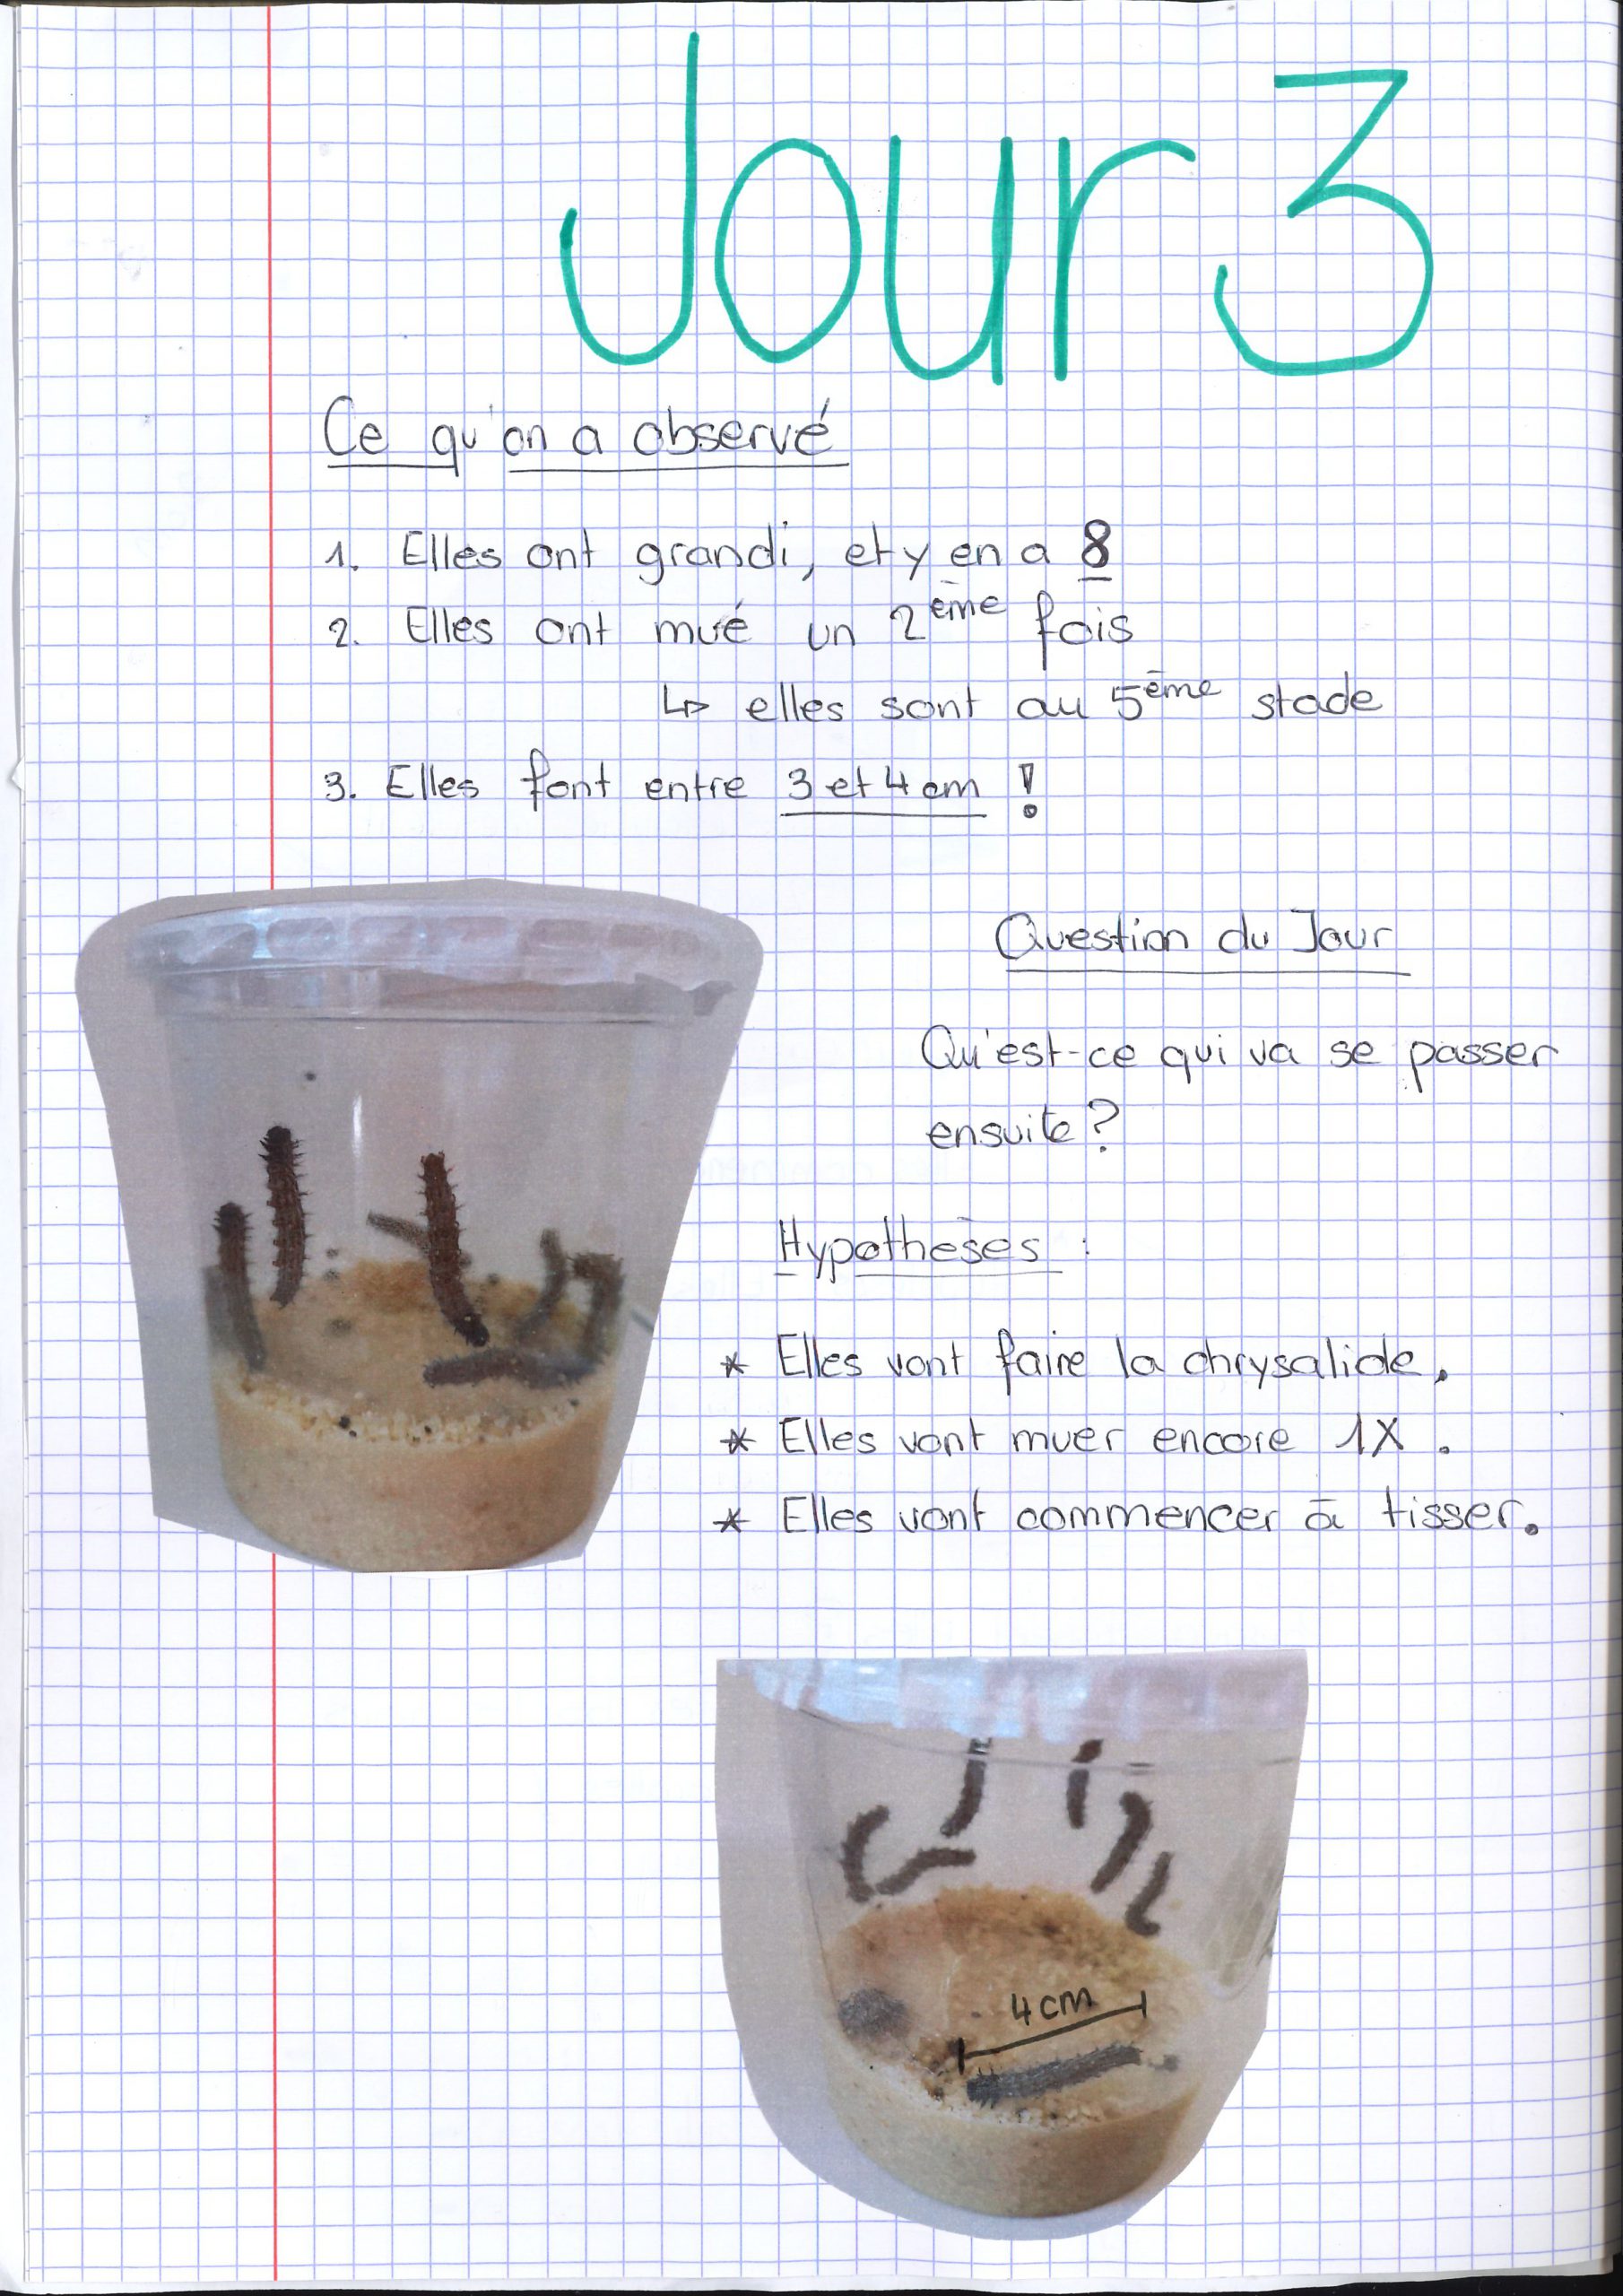 Jour 3
Ce qu'on a observé
1. Elles ont grandi, et y en a 8
2. Elles ont mué un 2ème fois
↳ elles sont au 5ème stade
3. Elles font entre 3 et 4 cm !
Question du Jour
Qu'est-ce qui va se passer
ensuite ?
Hypothèses :
* Elles vont faire la chrysalide.
* Elles vont muer encore 1X.
* Elles vont commencer à tisser.
4 cm